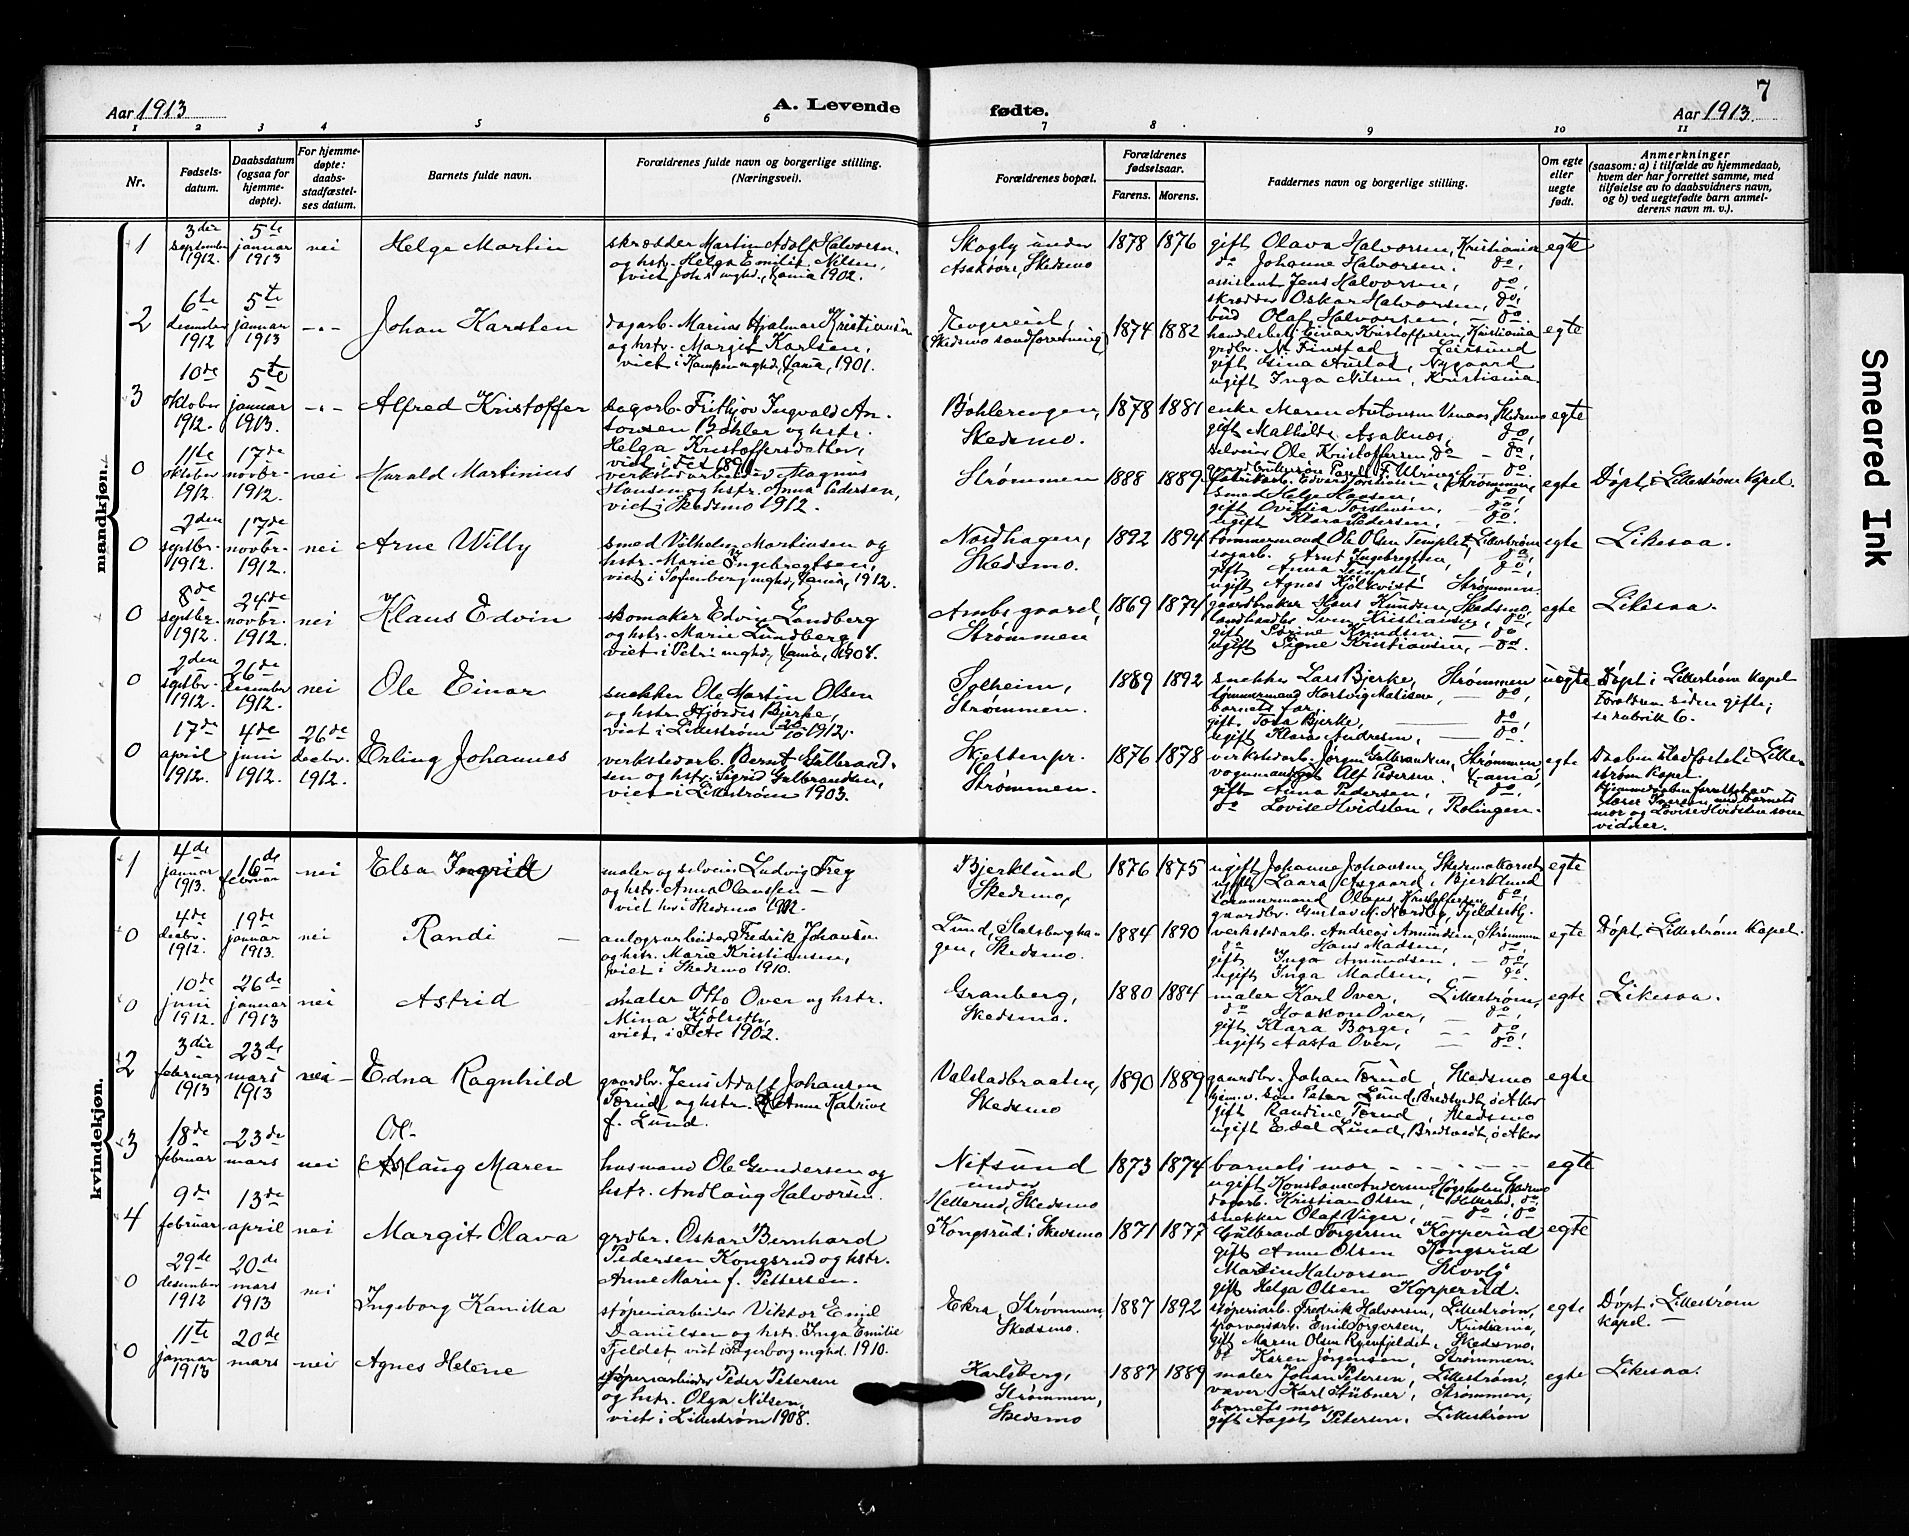 7
Aar 1913
A. Levende
fødte.
Aar 1913.
1 2 3 4 5 6 7 8 9 10 11
Nr.
Fødsels-
datum.
Daabsdatum
(ogsaa for
hjemme-
døpte).
For hjemme-
døpte:
daabs-
stadfæstel-
ses datum.
Barnets fulde navn.
Forældrenes fulde navn og borgerlige stilling.
(Næringsvei).
Forældrenes bopæl.
Forældrenes
fødselsaar.
Farens. Morens.
Faddernes navn og borgerlige stilling.
Om egte
eller
uegte
født.
Anmerkninger
(saasom: a) i tilfælde av hjemmedaab,
hvem der har forrettet samme, med
tilføielse av to daabsvidners navn,
og b) ved uegtefødte barn anmel-
derens navn m. v.).
mandkjøn.
1
3die
september
1912.
5te
januar
1913
nei
Helge Martin
skrædder Martin Adolf Halvorsen
og hstr. Helga Emilie Nilsen,
viet Joh's mghd., Xania 1902.
Skogly under
Asakøvre, Skedsmo
1878 1876
gift Olava Halvorsen, Kristiania
do Johanne Halvorsen, do,
assistent Jens Halvorsen, do,
skrædder Oskar Halvorsen, do,
bud Olaf Halvorsen, do,
egte
2
6te
1912
5te
januar
1913
-"-
Johan Karsten
dagarb. Marius Hjalmar Kristiansen
og hstr. Margit Karlsen,
viet i Kampen mghd., Xania, 1901.
(Skedsmo sandforretning)
1874 1882
handelsbetj. Einar Kristoffersen, Kristiania
grdbr. N. Finstad, Leirsund
gift Gina Austad, Nygaard
ugift Inga Nilsen, Kristiania
egte
3
10de
oktober
1912.
5te
januar
1913.
-"-
Alfred Kristoffer
dagarb. Fritjov Ingvald An-
tonsen Bøhler og hstr.
Helga Kristoffersdatter,
viet i Fet
Bøhlerengen,
Skedsmo.
1878 1881
enke Maren Antonsen Skedsmo
gift Mathilde Asaknes, do,
selveier Ole Kristoffersen, do - do,
egte
0
11te
oktober
1912.
17de
novbr.
1912.
nei
Harald Martinius
verkstedarbeider Magnus
Hansen og hstr. Anna Pedersen,
viet i Skedsmo 1912.
Strømmen
1888 1889.
fabrikarb. Edvard Torstensen, Strømmen,
smed Helge Hansen, do,
gift Ovidia Torstensen, - do,
ugift Klara Pedersen, - do.
egte
Døpt i Lillestrøm kapel.
0
2den
septbr.
1912.
17de
novbr.
1912.
nei
Arne Willy
smed Vilhelm Martinsen og
hstr. Marie Ingebregtsen,
viet i Sofienberg mghd., Xania, 1912.
Nordhagen,
Skedsmo.
1892 1894
tømmermand Ole Olsen Templet, Lillestrøm
Arnt Ingebregtsen, do,
gift Anna Templet do,
ugift Agnes Kjølkvist Strømmen.
egte
Likesaa.
0
8de
septbr.
1912.
24de
novbr.
1912.
nei
Klaus Edvin
skomaker Edvin Lundberg
og hstr. Marie Lundberg,
viet i Petri mghd., Xania, 1908.
Ambs gaard,
Strømmen
1869 1874
gaardbruker Hans Knudsen, Skedsmo,
Sven Kristiansen, do,
gift Sørine Knudsen - do,
ugift Signe Kristiansen, - do.
egte
Likesaa.
0
2den
septbr.
1912.
26de
desember
1912.
nei
Ole Einar
snekker Ole Martin Olsen
og hstr. Hjørdis Bjerke,
viet i Lillestrøm 1912.
Solheim,
Strømmen.
1889 1892
snekker Lars Bjerke, Strømmen
tømmermand Hartvig Matisen, - do,
barnets far,
gift Tora Bjerke, do,
ugift Klara Andresen, - do,
uegte
Døpt i Lillestrøm kapel
Forældrene siden gifte;
se rubrik 6.
0
17de
april
1912.
4de
juni
1912.
26de
decbr.
1912.
Erling Johannes
verkstedarb. Bernt Gulbrand-
sen og hstr. Sigrid Gulbrandsen,
viet i Lillestrøm 1903.
Skjetten pr.
Strømmen.
1876 1878
verkstedarb. Jørgen Gulbrandsen, Strømmen
vognmand Alf Pedersen, Xania,
gift Anna Pedersen, - do,
do Lovise Hvidsten, Rælingen.
egte
Daaben stadfæstet i Lille-
strøm kapel.
hjemmedaaben forrettet av
lærer Iversen med barnets
mor og Lovise Hvidsten som
vidner.
kvindekjøn.
1
4de
januar
1913.
16de
februar
nei
Elsa Ingrid
maler og selveier Ludvig Frey
og hstr. Anna Olaussen -
viet her i Skedsmo 1902.
Bjerklund
Skedsmo,
1876 1875
ugift Johanne Johansen, Skedsmokorset
ugift Laura Aasgaard, Bjerklund
tømmermand Olaus Kristoffersen, do,
gaardbr. Gustav M. Nordby, Fjeldseth.
egte
0
4de
decbr.
1912.
19de
januar
1913.
nei
Randi
anlægsarbeider Fredrik Johansen
og hstr. Marie Kristiansen,
viet i Skedsmo 1910.
Lund, Stalsberg ha-
gen, Skedsmo.
1884 1890
verkstedarb. Andreas Amundsen, Strømmen
do Hans Madsen, do,
gift Inga Amundsen, - do,
ugift Inga Madsen, - do.
egte
Døpt i Lillestrøm kapel.
0
10de
juni
1912.
26de
januar
1913
nei
Astrid
maler Otto Over og hstr.
Mina Kjølseth,
viet i Fet 1902.
Granberg,
Skedsmo.
1880 1884
maler Karl Over, Lillestrøm,
do Haakon Over, do,
gift Klara Borge, - do,
ugift Aasta Over, - do.
egte
Likesaa.
2
3die
februar
1913
23de
mars
1913
nei
Edna Ragnhild
gaardbr. Jens Adolf Johansen
Tærud og hstr. Anne Katrine
f. Lund.
Valstadbraaten,
Skedsmo
1890 1889
gaardbr. Johan Tærud, Skedsmo
Peter Lund, Bredtvedt, ø. Aker
gift Randine Tærud, Skedsmo
ugift Edel Lund, Bredtvedt, ø. Aker
egte
3
18de
februar
23de
mars
nei
Aslaug Maren
husmand Ole Gundersen og
hstr. Andlaug Halvorsen.
Nitsund
under
Hellerud, Skedsmo
1873 1874
barnets mor
ugift Konstanse Andersen, Skedsmo
dagarb. Kristian Olsen, Hellerud, do
snekker Olaf Viger, - do, do
egte
4
9de
februar
13de
april
nei
Margit Olava
grdbr. Oskar Bernhard
Pedersen Kongsrud og hstr.
Anne Marie f. Pettersen.
Kongsrud i Skedsmo
1871 1877
Gulbrand Torgersen Kopperud
gift Anne Olsen Kongsrud
Martin Halvorsen
gift Helga Olsen Kopperud.
egte
0
29de
desember
1912
20de
mars
1913
nei
Ingeborg Kamilla
støperiarbeider Viktor Emil
Danielsen og hstr. Inga Emilie
Fjeldet, viet i Fagerborg mghd. 1910.
Ekra, Strømmen,
Skedsmo.
1887 1892
støperiarb. Fredrik Halvorsen, Lillestrøm,
Emil Torgersen, Kristiania,
gift Maren Olsen Ryenfjeldet, Skedsmo,
do Karen Jørgensen, Strømmen.
egte
Døpt i Lillestrøm
kapel.
0
11te
januar
1913
20de
mars
nei
Agnes Helene
støperiarbeider Peder Petersen
og hstr. Olga Nilsen,
viet i Lillestrøm 1908.
Karlsberg,
Strømmen,
Skedsmo
1887 1889
maler Johan Petersen, Lillestrøm,
væver Karl Stübner, Strømmen,
barnets mor,
gift Aagot Petersen, Lillestrøm
egte
Likesaa.
Smeared Ink